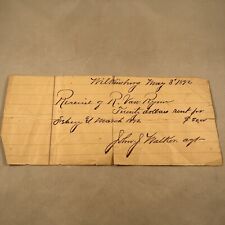 Wilkinsburg May 3rd 1892
Received of R. Van Ryn
Twenty dollars rent for
& March 1892 $ 20.00
John J Walker agt